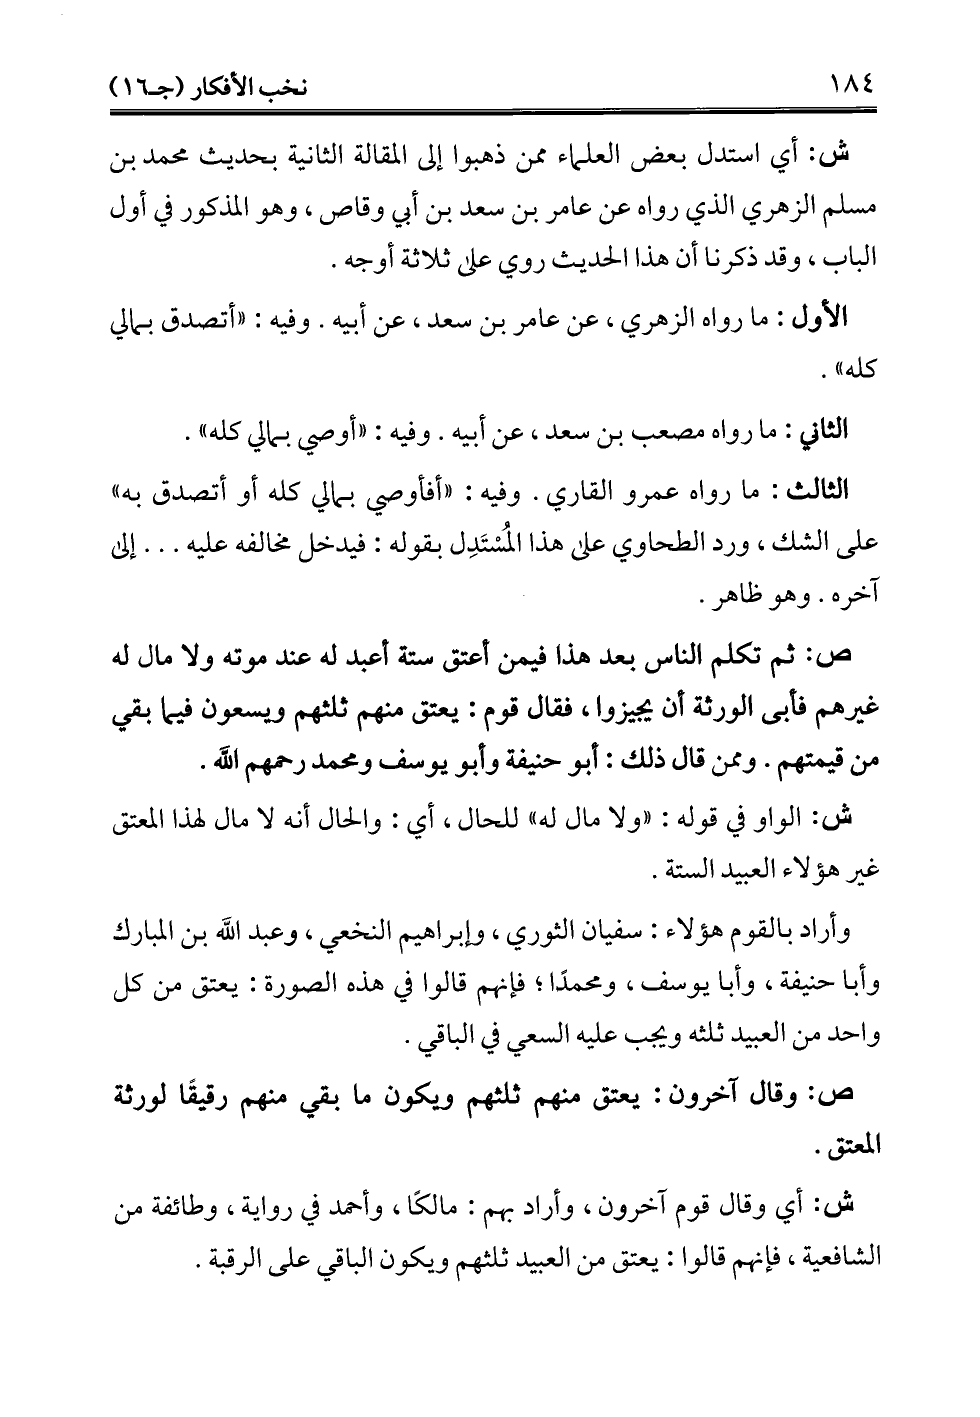 ١٨٤ نخب الأفكار (جـ١٦)
ش: أي استدل بعض العلماء ممن ذهبوا إلى المقالة الثانية بحديث محمد بن
مسلم الزهري الذي رواه عن عامر بن سعد بن أبي وقاص ، وهو المذكور في أول
الباب ، وقد ذكرنا أن هذا الحديث روي على ثلاثة أوجه .
الأول : ما رواه الزهري ، عن عامر بن سعد ، عن أبيه . وفيه : «أتصدق بمالي
كله» .
الثاني : ما رواه مصعب بن سعد ، عن أبيه . وفيه : «أوصي بمالي كله» .
الثالث : ما رواه عمرو القاري . وفيه : «أفأوصي بمالي كله أو أتصدق به»
على الشك ، ورد الطحاوي على هذا المُسْتَدِل بقوله : فيدخل مخالفه عليه ... إلى
آخره . وهو ظاهر .
ص: ثم تكلم الناس بعد هذا فيمن أعتق ستة أعبد له عند موته ولا مال له
غيرهم فأبى الورثة أن يجيزوا ، فقال قوم : يعتق منهم ثلثهم ويسعون فيما بقي
من قيمتهم . وممن قال ذلك : أبو حنيفة وأبو يوسف ومحمد رحمهم الله .
ش: الواو في قوله : «ولا مال له» للحال ، أي : والحال أنه لا مال لهذا المعتق
غير هؤلاء العبيد الستة .
وأراد بالقوم هؤلاء : سفيان الثوري ، وإبراهيم النخعي ، وعبد الله بن المبارك
وأبا حنيفة ، وأبا يوسف ، ومحمدًا ؛ فإنهم قالوا في هذه الصورة : يعتق من كل
واحد من العبيد ثلثه ويجب عليه السعي في الباقي .
ص: وقال آخرون : يعتق منهم ثلثهم ويكون ما بقي منهم رقيقًا لورثة
المعتق .
ش: أي وقال قوم آخرون ، وأراد بهم : مالكًا ، وأحمد في رواية ، وطائفة من
الشافعية ، فإنهم قالوا : يعتق من العبيد ثلثهم ويكون الباقي على الرقبة .